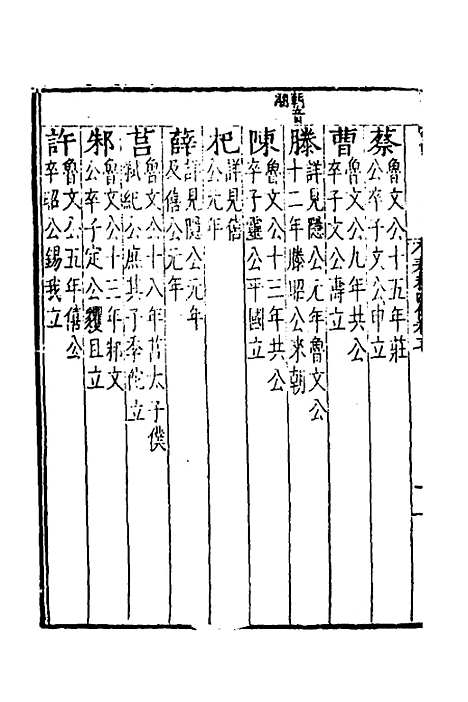 蔡 魯文公十五年莊
公卒子文公申立
曹 魯文公九年共公
卒子文公壽立
朝音
潮
滕 詳見隱公元年魯文公
十二年滕昭公來朝
陳 魯文公十三年共公
卒子靈公平國立
杞 詳見僖
公元年
薛 詳見隱公元年
及僖公元年
莒 魯文公十八年莒太子僕
弑紀公庶其子季佗立
邾 魯文公十三年邾文
公卒子定公貜且立
許 魯文公五年僖公
卒昭公錫我立